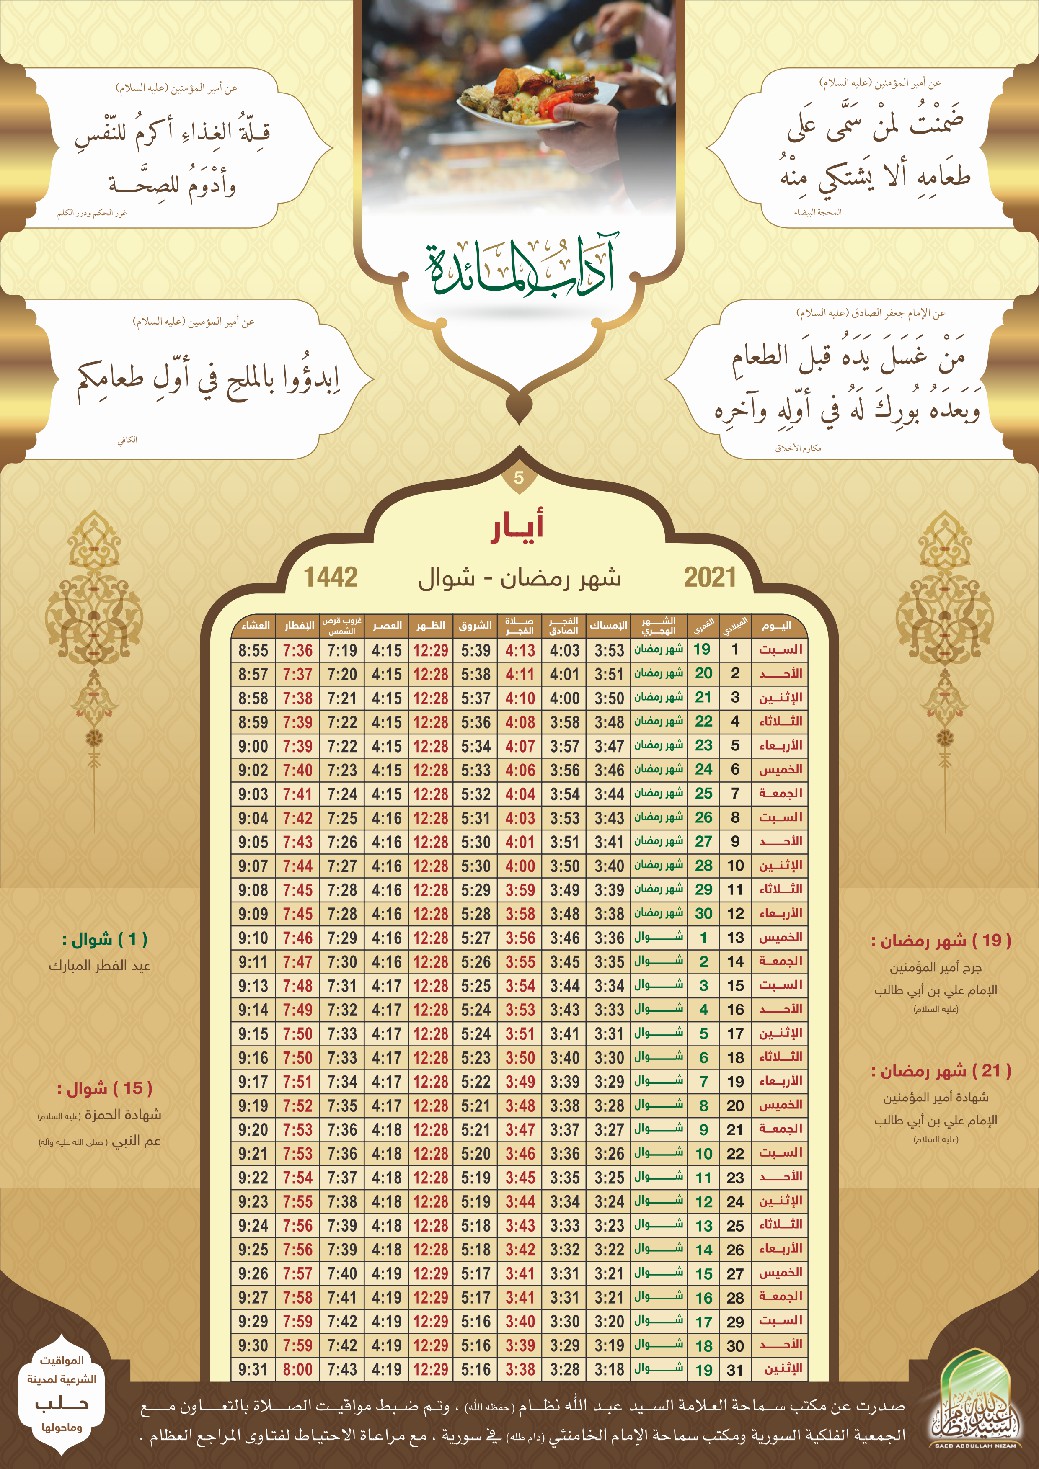 عن أمير المؤمنين (عليه السلام)
ضَمنْتُ لمنْ سَمَّى عَلَى
طعَامِهِ ألا يَشتكي مِنْهُ
المحجة البيضاء
عن أمير المؤمنين (عليه السلام)
قِلّةُ الغِذاءِ أكرمُ للنّفْسِ
وأدْوَمُ للصِحَّة
غرر الحكم ودرر الكلم
آداب المائدة
عن الإمام جعفر الصادق (عليه السلام)
مَنْ غَسَلَ يَدَهُ قبلَ الطعامِ
وَبَعدَهُ بُورِكَ لَهُ في أوّلِهِ وآخرِه
مكارم الأخلاق
عن أمير المؤمنين (عليه السلام)
اِبدؤُوا بالملحِ في أوّلِ طعامِكم
الكافي
5
أيار
2021 شهر رمضان - شوال 1442
اليوم الميلادي القمري الشهر الهجري الإمساك الفجر الصادق صلاة الفجر الشروق الظهر العصر غروب قرص الشمس الإفطار العشاء
السبت 1 19 شهر رمضان 3:53 4:03 4:13 5:39 12:29 4:15 7:19 7:36 8:55
الأحد 2 20 شهر رمضان 3:51 4:01 4:11 5:38 12:28 4:15 7:20 7:37 8:57
الإثنين 3 21 شهر رمضان 3:50 4:00 4:10 5:37 12:28 4:15 7:21 7:38 8:58
الثلاثاء 4 22 شهر رمضان 3:48 3:58 4:08 5:36 12:28 4:15 7:22 7:39 8:59
الأربعاء 5 23 شهر رمضان 3:47 3:57 4:07 5:34 12:28 4:15 7:22 7:39 9:00
الخميس 6 24 شهر رمضان 3:46 3:56 4:06 5:33 12:28 4:15 7:23 7:40 9:02
الجمعة 7 25 شهر رمضان 3:44 3:54 4:04 5:32 12:28 4:15 7:24 7:41 9:03
السبت 8 26 شهر رمضان 3:43 3:53 4:03 5:31 12:28 4:16 7:25 7:42 9:04
الأحد 9 27 شهر رمضان 3:41 3:51 4:01 5:30 12:28 4:16 7:26 7:43 9:05
الإثنين 10 28 شهر رمضان 3:40 3:50 4:00 5:30 12:28 4:16 7:27 7:44 9:07
الثلاثاء 11 29 شهر رمضان 3:39 3:49 3:59 5:29 12:28 4:16 7:28 7:45 9:08
الأربعاء 12 30 شهر رمضان 3:38 3:48 3:58 5:28 12:28 4:16 7:28 7:45 9:09
الخميس 13 1 شوال 3:36 3:46 3:56 5:27 12:28 4:16 7:29 7:46 9:10
الجمعة 14 2 شوال 3:35 3:45 3:55 5:26 12:28 4:16 7:30 7:47 9:11
السبت 15 3 شوال 3:34 3:44 3:54 5:25 12:28 4:17 7:31 7:48 9:13
الأحد 16 4 شوال 3:33 3:43 3:53 5:24 12:28 4:17 7:32 7:49 9:14
الإثنين 17 5 شوال 3:31 3:41 3:51 5:24 12:28 4:17 7:33 7:50 9:15
الثلاثاء 18 6 شوال 3:30 3:40 3:50 5:23 12:28 4:17 7:33 7:50 9:16
الأربعاء 19 7 شوال 3:29 3:39 3:49 5:22 12:28 4:17 7:34 7:51 9:17
الخميس 20 8 شوال 3:28 3:38 3:48 5:21 12:28 4:17 7:35 7:52 9:19
الجمعة 21 9 شوال 3:27 3:37 3:47 5:21 12:28 4:18 7:36 7:53 9:20
السبت 22 10 شوال 3:26 3:36 3:46 5:20 12:28 4:18 7:36 7:53 9:21
الأحد 23 11 شوال 3:25 3:35 3:45 5:19 12:28 4:18 7:37 7:54 9:22
الإثنين 24 12 شوال 3:24 3:34 3:44 5:19 12:28 4:18 7:38 7:55 9:23
الثلاثاء 25 13 شوال 3:23 3:33 3:43 5:18 12:28 4:18 7:39 7:56 9:24
الأربعاء 26 14 شوال 3:22 3:32 3:42 5:18 12:28 4:18 7:39 7:56 9:25
الخميس 27 15 شوال 3:21 3:31 3:41 5:17 12:29 4:19 7:40 7:57 9:26
الجمعة 28 16 شوال 3:21 3:31 3:41 5:17 12:29 4:19 7:41 7:58 9:27
السبت 29 17 شوال 3:20 3:30 3:40 5:16 12:29 4:19 7:42 7:59 9:29
الأحد 30 18 شوال 3:19 3:29 3:39 5:16 12:29 4:19 7:42 7:59 9:30
الإثنين 31 19 شوال 3:18 3:28 3:38 5:16 12:29 4:19 7:43 8:00 9:31
( 19 ) شهر رمضان :
جرح أمير المؤمنين
الإمام علي بن أبي طالب
(عليه السلام)
( 21 ) شهر رمضان :
شهادة أمير المؤمنين
الإمام علي بن أبي طالب
(عليه السلام)
( 1 ) شوال :
عيد الفطر المبارك
( 15 ) شوال :
شهادة الحمزة (عليه السلام)
عم النبي (صلى الله عليه وآله)
المواقيت
الشرعية لمدينة
حلب
وماحولها
صدرت عن مكتب سماحة العلامة السيد عبد الله نظام (حفظه الله) ، وتم ضبط مواقيت الصلاة بالتعاون مع
الجمعية الفلكية السورية ومكتب سماحة الإمام الخامنئي (دام ظله) في سورية ، مع مراعاة الاحتياط لفتاوى المراجع العظام .
السيد عبدالله نظام
SAED ABDULLAH NIZAM